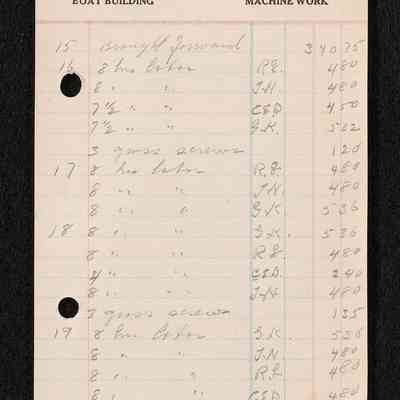 BOAT BUILDING MACHINE WORK
15 Brought forward 340 75
16 8 hrs labor R.E. 4 80
8 " " J.N. 4 80
7 1/2 " " CED 4 50
7 1/2 " " G.K. 5 02
3 gross screws 1 20
17 8 hrs labor R.E. 4 80
8 " " J.N. 4 80
8 " " G.K. 5 36
18 8 " " G.K. 5 36
8 " " R.E. 4 80
4 " " CED. 2 40
8 " " J.N. 4 80
3 gross screws 1 35
19 8 hrs labor G.K. 5 36
8 " " J.N. 4 80
8 " " R.E. 4 80
8 " " CED 4 80